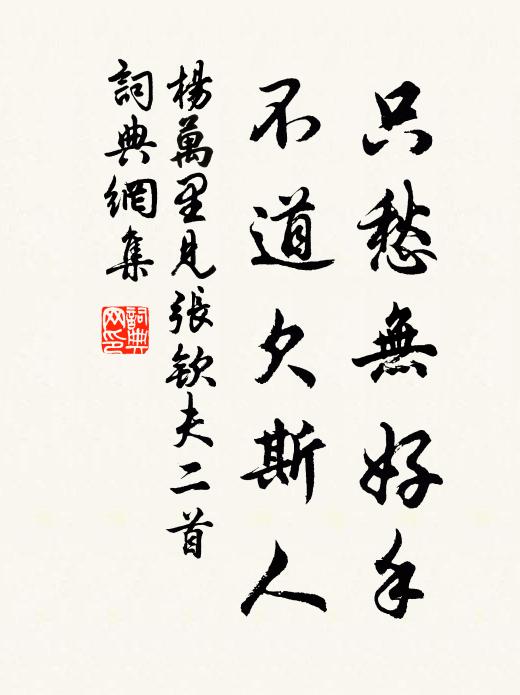 只愁無好手
不道欠斯人
楊萬里見張欽夫二首
詞典網集
詞典网印